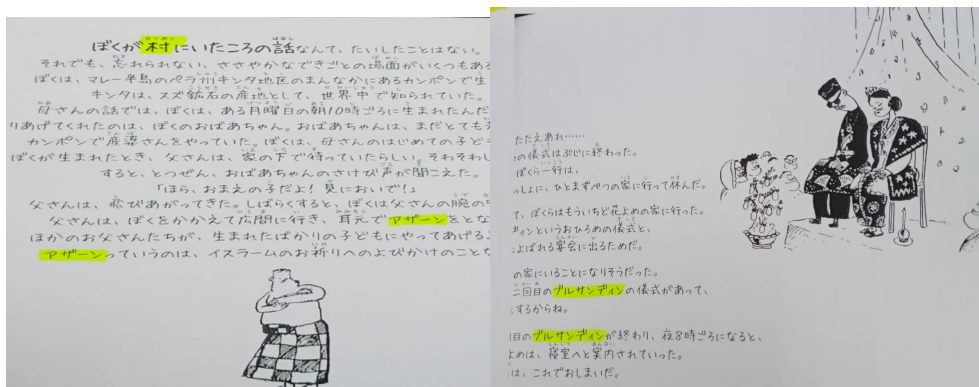 ぼくが村にいたころの話なんて、たいしたことはない。
それでも、忘れられない、ささやかなできごとの場面がいくつもある
ぼくは、マレー半島のペラ州キンタ地区のまんなかにあるカンポンで生
キンタは、スズ鉱石の産地として、世界中で知られていた。
母さんの話では、ぼくは、ある月曜日の朝10時ごろに生まれたんだ
りあげてくれたのは、ぼくのおばあちゃん。おばあちゃんは、まだとても
カンポンで産婆さんをやっていた。ぼくは、母さんのはじめての子ども
ぼくが生まれたとき、父さんは、家の下で待っていたらしい。そわそわし
すると、とつぜん、おばあちゃんのさけび声が聞こえた。
「ほら、おまえの子だよ！見においで！」
父さんは、飛びあがってきた。しばらくすると、ぼくは父さんの腕の
父さんは、ぼくをかかえて広間に行き、耳元でアザーンをとな
ほかのお父さんたちが、生まれたばかりの子どもにやってあげる
アザーンっていうのは、イスラームのお祈りへのよびかけのことな
たたえあれ……
の儀式はぶじに終わった。
ぼくら一行は、
っしょに、ひとまずべつの家に行って休んだ。
て、ぼくらはもういちど花よめの家に行った。
ディンというおひろめの儀式と、
よばれる宴会に出るためだ。
の家にいることになりそうだった。
二回目のブルサンディンの儀式があって、
するからね。
目のブルサンディンが終わり、夜8時ごろになると、
よめは、寝室へと案内されていった。
は、これでおしまいだ。